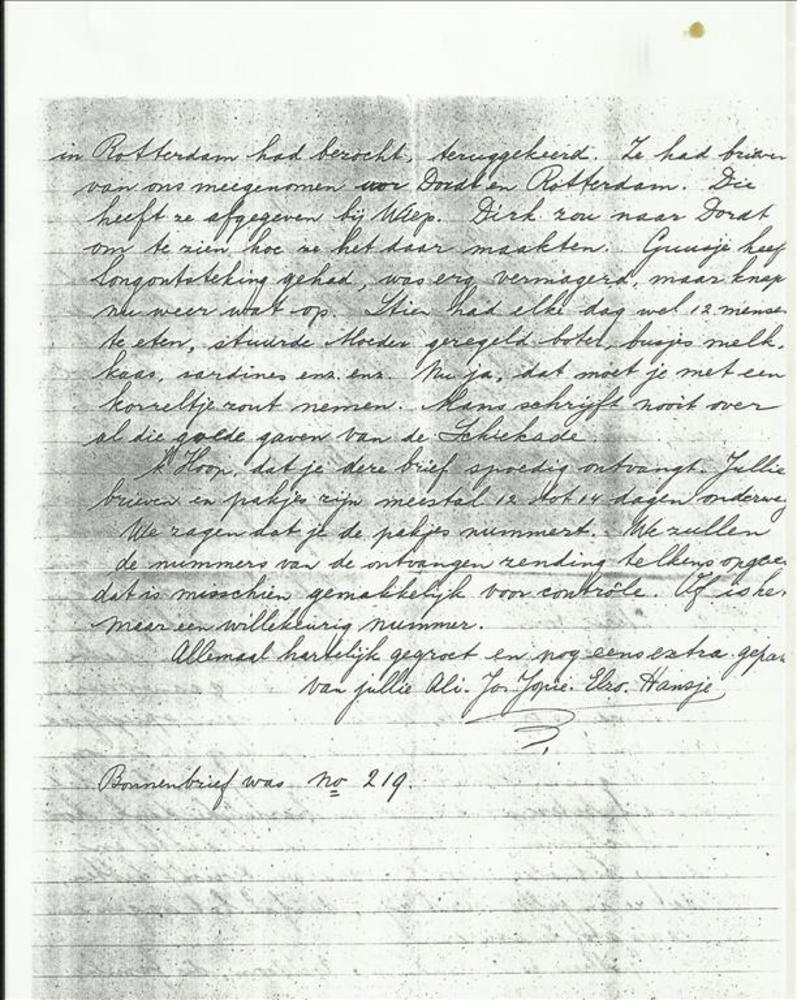 in Rotterdam had bezocht, teruggekeerd. Ze had brieven
van ons meegenomen voor Dordt en Rotterdam. Die
heeft ze afgegeven bij Wiep. Dirk zou naar Dordt
om te zien hoe ze het daar maakten. Guusje heef
longontsteking gehad, was erg vermagerd, maar knap
nu weer wat op. Stien had elke dag wel 12 mense
te eten, stuurde Moeder geregeld boter, busjes melk,
kaas, sardines enz. enz. Nu ja, dat moet je met een
korreltje zout nemen. Mans schrijft nooit over
al die goede gaven van de Schiekade.
'k Hoop, dat je deze brief spoedig ontvangt. Jullie
brieven en pakjes zijn meestal 12 tot 14 dagen onderweg
We zagen dat je de pakjes nummert. We zullen
de nummers van de ontvangen zending telkens opgeve
dat is misschien gemakkelijk voor contrôle. Of is he
maar een willekeurig nummer.
Allemaal hartelijk gegroet en nog eens extra gepa
van jullie Ali. Jo. Jopie. Elzo. Hansje
Bonnenbrief was no 219.